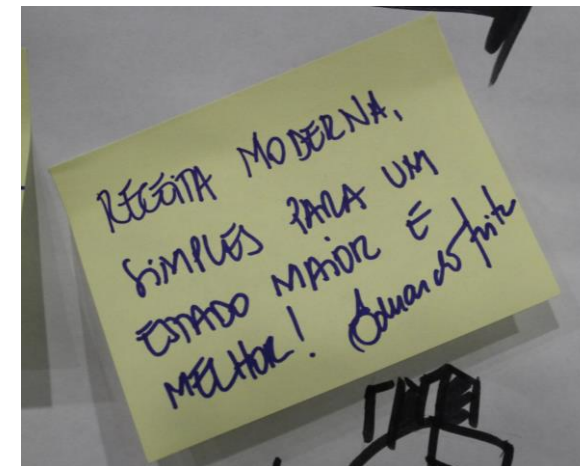 RECEITA MODERNA,
SIMPLES PARA UM
ESTADO MAIOR E
MELHOR! Eduardo